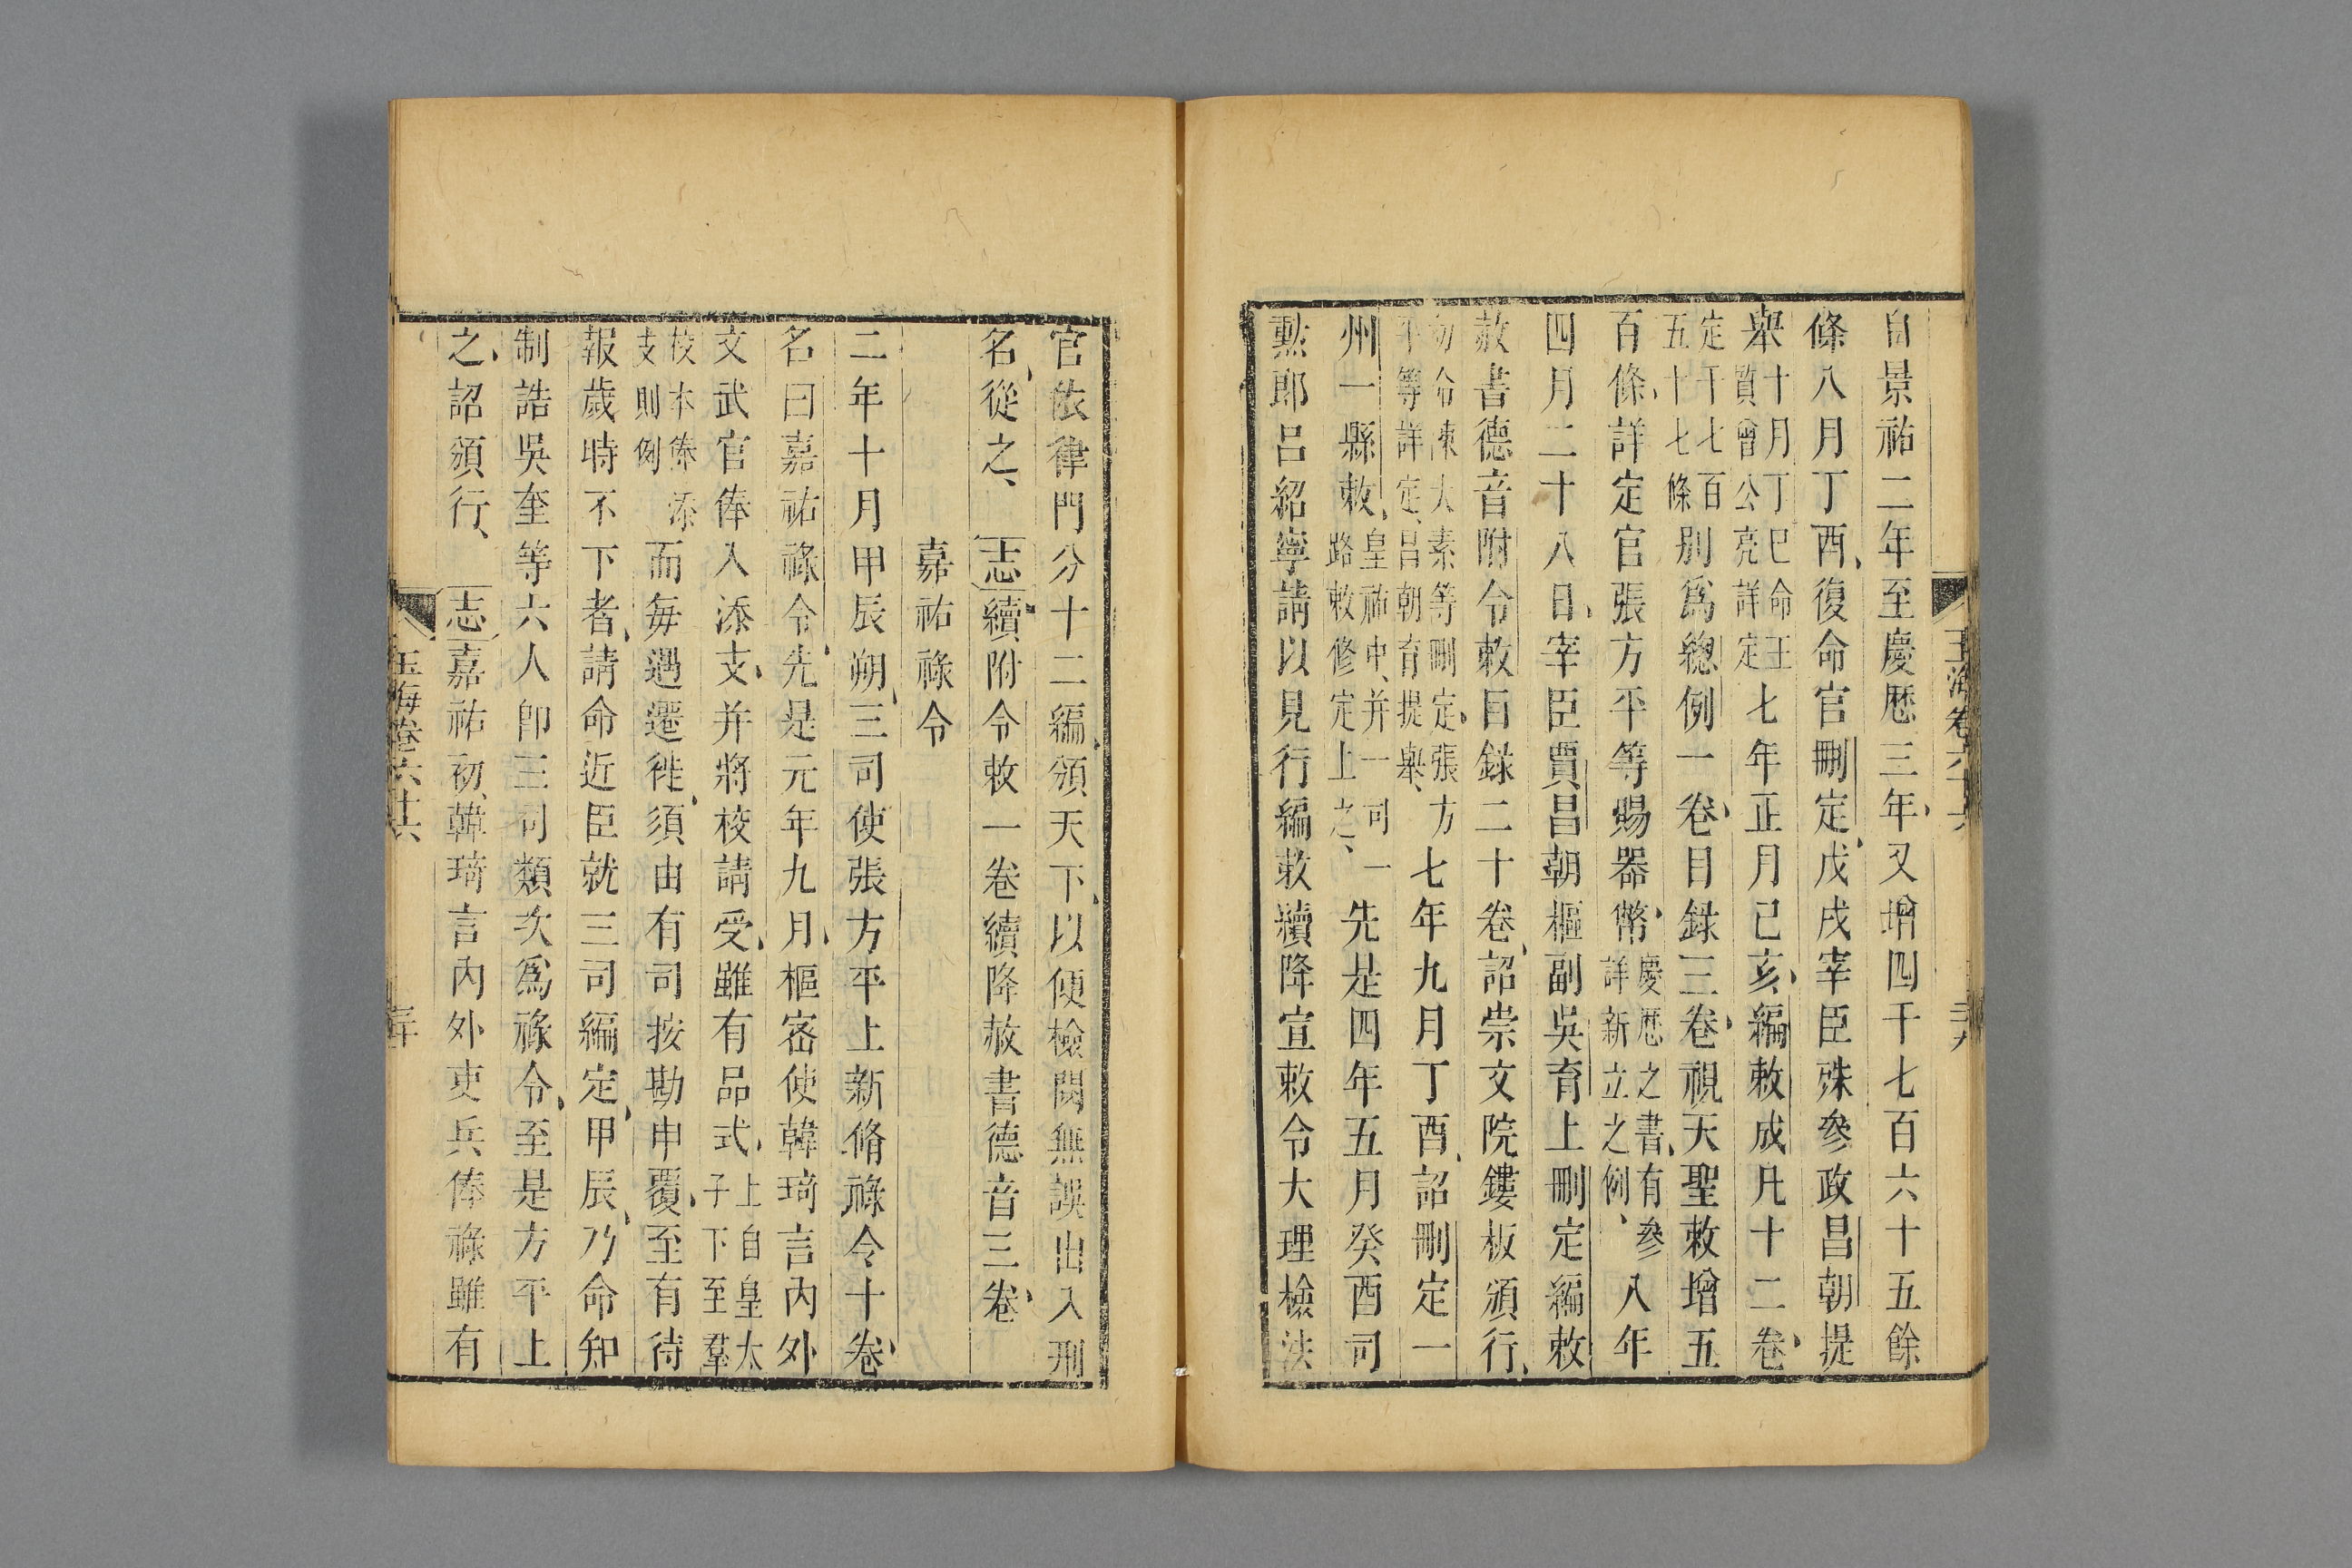 玉海卷六十六
自景祐二年至慶歷三年又增四千七百六十五餘
條八月丁酉復命官刪定戊戌宰臣殊參政昌朝提
舉十月丁巳命王質曾公亮詳定七年正月己亥編敕成凡十二卷
定千七百五十七條別為總例一卷目録三卷視天聖敕增五
百條詳定官張方平等賜器幣慶歷之書有參詳新立之例八年
四月二十八日宰臣賈昌朝樞副吳育上刪定編敕
赦書德音附令敕目録二十卷詔崇文院鏤板頒行
初命陳太素等刪定張方平等詳定呂朝育提舉七年九月丁酉詔刪定一
州一縣敕皇祐中并一司一路敕修定上之先是四年五月癸酉司
勲郎呂紹寧請以見行編敕續降宣敕令大理檢法
官依律門分十二編頒天下以便檢閱無誤出入刑
名從之志續附令敕一卷續降赦書德音三卷
嘉祐祿令
二年十月甲辰朔三司使張方平上新脩祿令十卷
名曰嘉祐祿令先是元年九月樞密使韓琦言内外
文武官俸入添支并將校請受雖有品式上自皇太子下至羣
校本俸添支則例而每遇遷徙須由有司按勘申覆至有待
報歲時不下者請命近臣就三司編定甲辰乃命知
制誥吳奎等六人即三司類次為祿令至是方平上
之詔頒行志嘉祐初韓琦言内外吏兵俸祿雖有
玉海卷六十六
三十